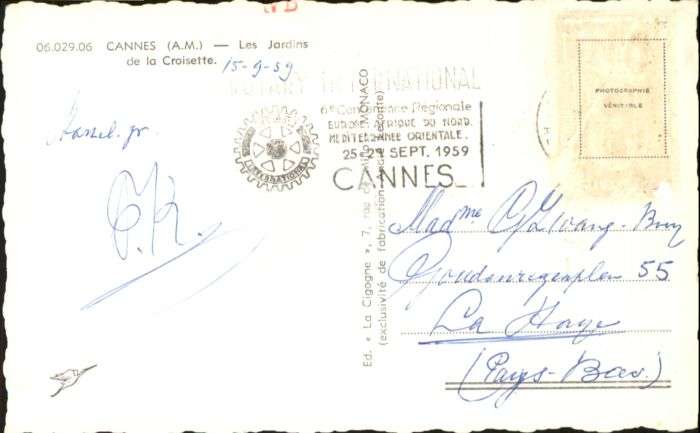 06.029.06 CANNES (A.M.) — Les Jardins
de la Croisette.
15-9-59
ROTARY INTERNATIONAL
6e Conférence Régionale
EUROPE AFRIQUE DU NORD
MEDITERRANEE ORIENTALE.
25-29 SEPT. 1959
CANNES
ROTARY
INTERNATIONAL
PHOTOGRAPHIE
VÉRITABLE
Hassel. gr.
P.K.
Ed. « La Cigogne », 7, rue MONACO
(exclusivité de fabrication
Madme
Goudenregenplein 55
La Haye
(Pays-Bas.)